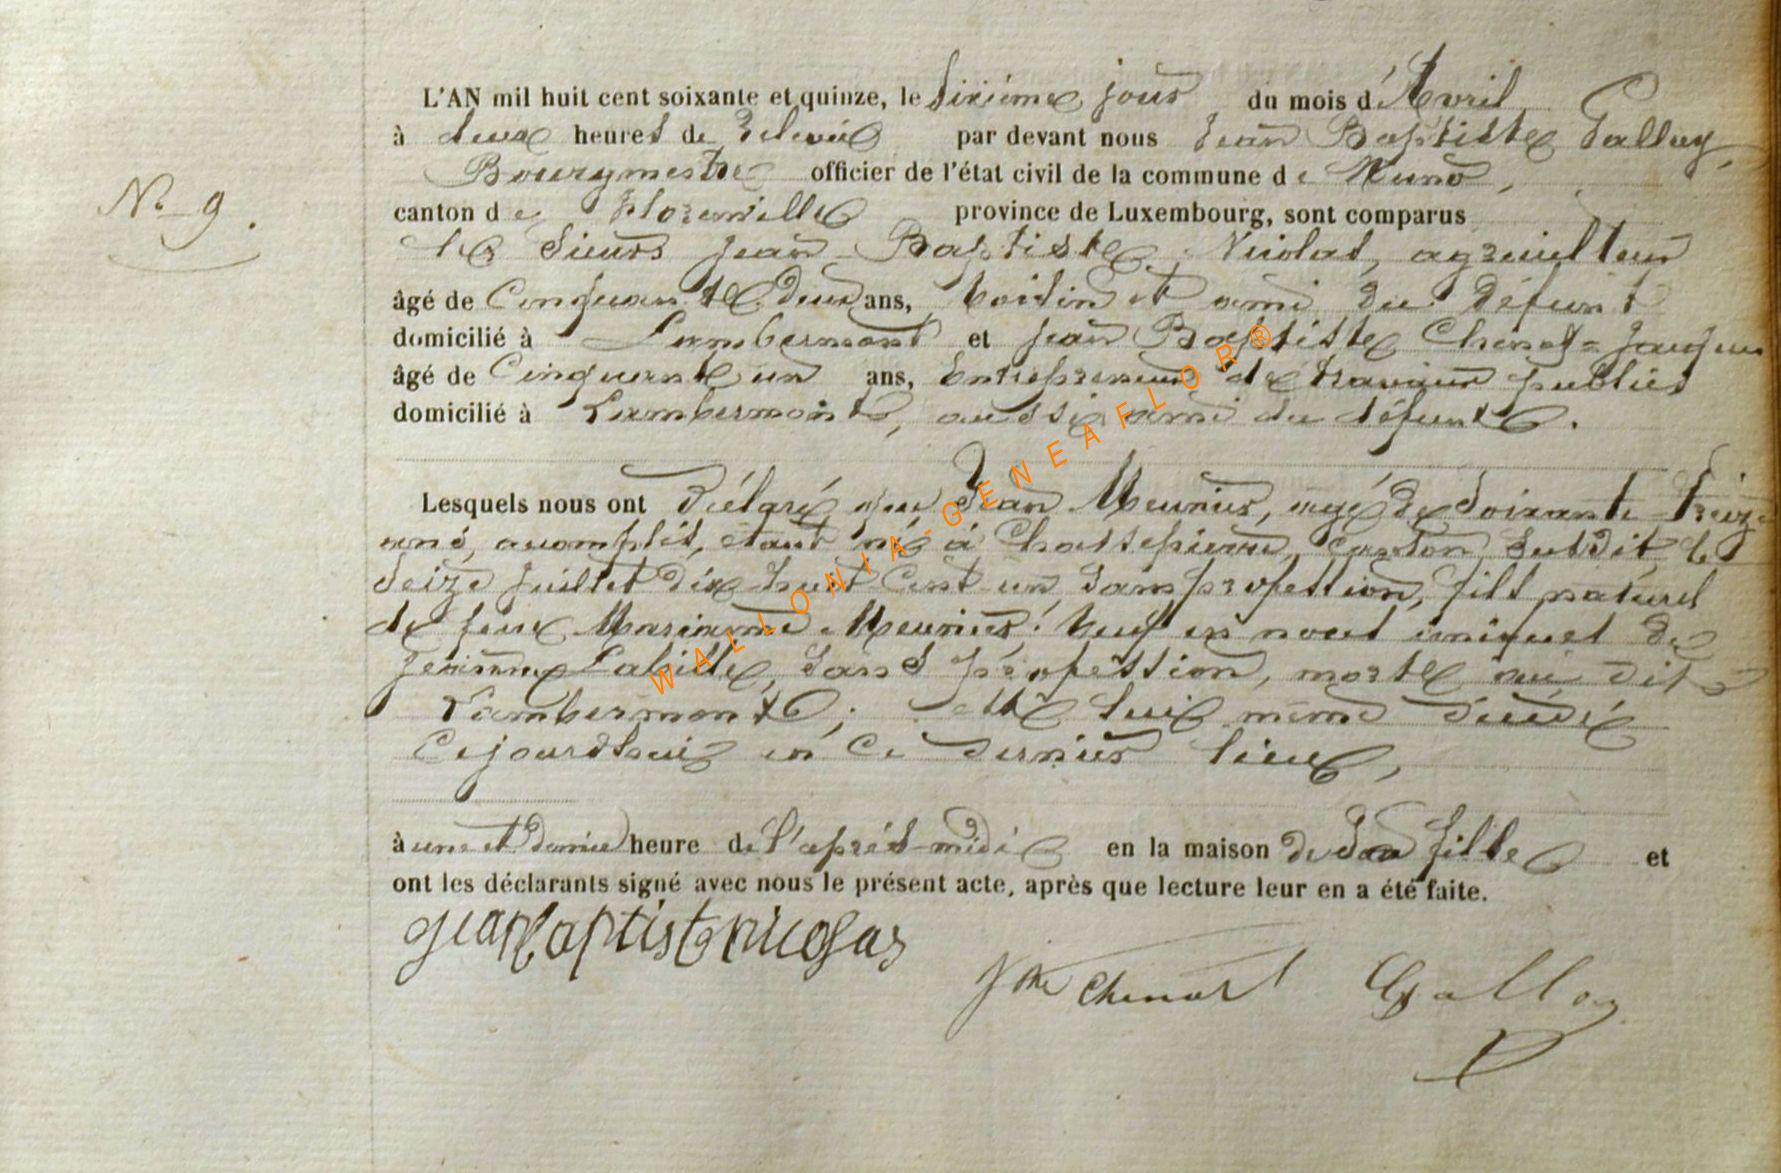 N° 9.
L'AN mil huit cent soixante et quinze, le sixième jour du mois d'Avril
à deux heures de relevée par devant nous Jean Baptiste Galloy,
Bourgmestre officier de l'état civil de la commune de Muno,
canton de Florenville province de Luxembourg, sont comparus
les sieurs Jean Baptiste Nicolas, agriculteur
âgé de Cinquante deux ans, voisin et ami du défunt
domicilié à Lambermont et Jean Baptiste Chenot=Jacques
âgé de Cinquante un ans, Entrepreneur de travaux publics
domicilié à Lambermont, aussi ami du défunt.
Lesquels nous ont déclaré que Jean Meunier, agé de Soixante treize
ans, accomplis, étant né à Chassepierre, Canton susdit, le
Seize Juillet dix huit Cent un, sans profession, fils naturel
de feue Marianne Meunier! Veuf en noces uniques de
Jeanne Labille, sans profession, morte au dit
Lambermont; est lui même décédé
Cejourdhui en ce dernier lieu,
à une et demie heure de l'après-midi en la maison de sa fille et
ont les déclarants signé avec nous le présent acte, après que lecture leur en a été faite.
jean baptiste nicolas
Jtte Chenot Galloy
WALLONIA-GENEAFLOR®